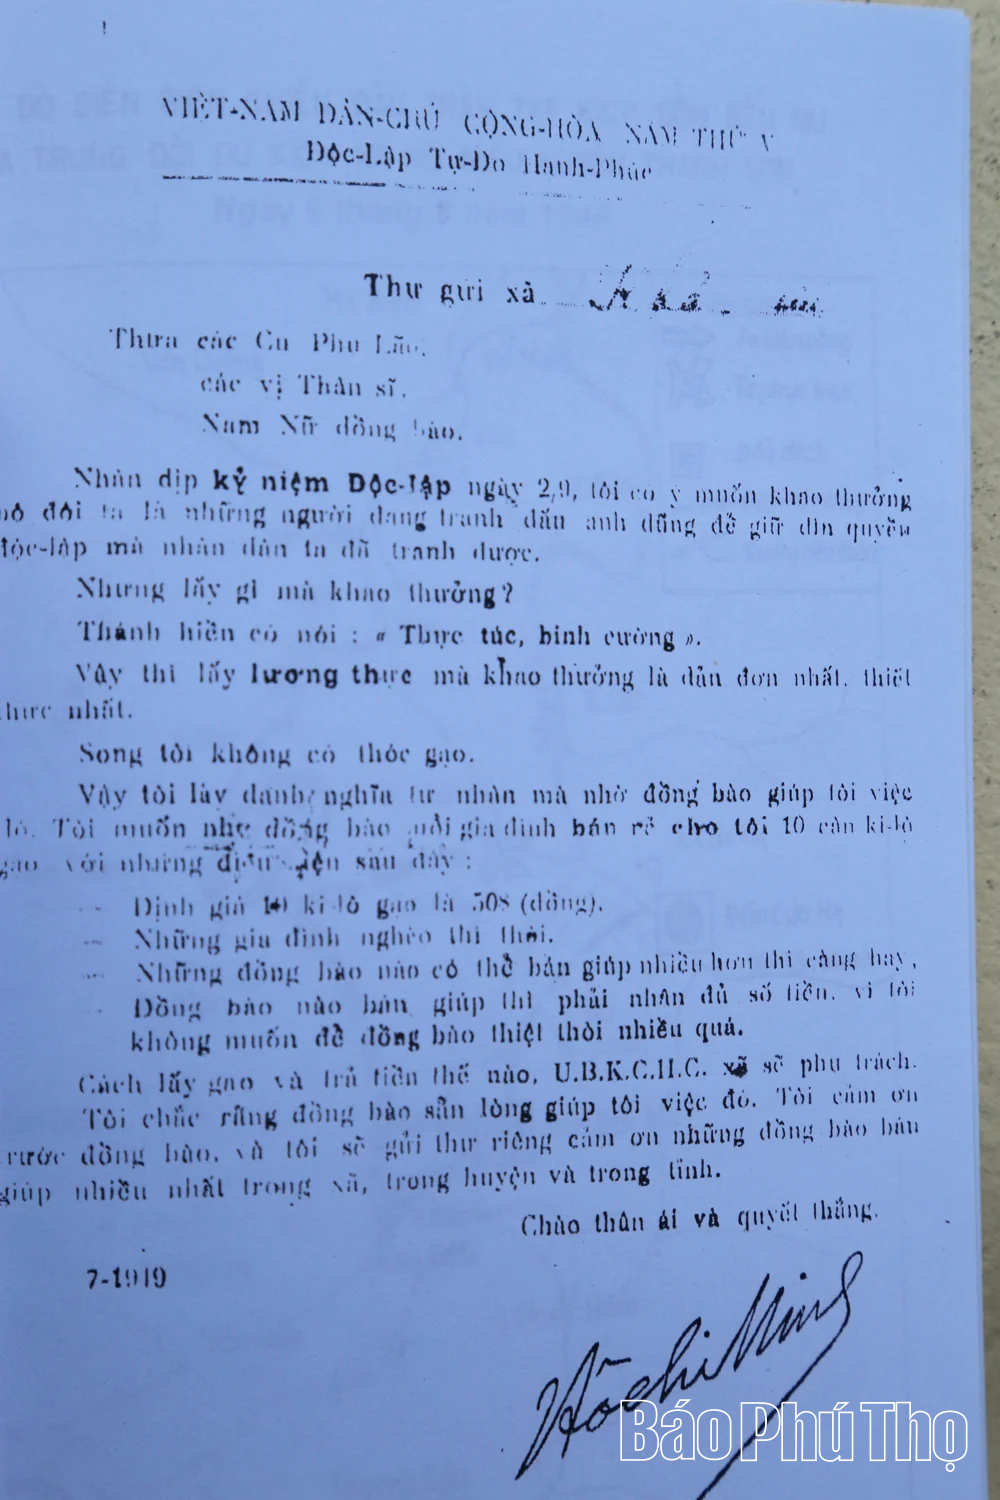 VIỆT-NAM DÂN-CHỦ CỘNG-HÒA NĂM THỨ V
Độc-Lập Tự-Do Hạnh-Phúc
Thư gửi xã
Thưa các Cụ Phụ Lão,
các vị Thân sĩ,
Nam Nữ đồng bào,
Nhân dịp kỷ niệm Độc-lập ngày 2,9, tôi có ý muốn khao thưởng
bộ đội ta là những người đang tranh đấu anh dũng để giữ gìn quyền
độc-lập mà nhân dân ta đã tranh được.
Nhưng lấy gì mà khao thưởng?
Thánh hiền có nói : « Thực túc, binh cường ».
Vậy thì lấy lương thực mà khao thưởng là dản đơn nhất, thiết
thực nhất.
Song tôi không có thóc gạo.
Vậy tôi lấy danh nghĩa tư nhân mà nhờ đồng bào giúp tôi việc
đó. Tôi muốn nhờ đồng bào mỗi gia đình bán rẻ cho tôi 10 cân ki-lô
gạo với những điều kiện sau đây :
— Định giá 10 ki-lô gạo là 50$ (đồng).
— Những gia đình nghèo thì thôi.
— Những đồng bào nào có thể bán giúp nhiều hơn thì càng hay,
— Đồng bào nào bán giúp thì phải nhận đủ số tiền, vì tôi
không muốn để đồng bào thiệt thòi nhiều quá.
Cách lấy gạo và trả tiền thế nào, U.B.K.C.H.C. xã sẽ phụ trách.
Tôi chắc rằng đồng bào sẵn lòng giúp tôi việc đó. Tôi cảm ơn
trước đồng bào, và tôi sẽ gửi thư riêng cảm ơn những đồng bào bán
giúp nhiều nhất trong xã, trong huyện và trong tỉnh.
Chào thân ái và quyết thắng.
7-1949
Hồ Chí Minh
Báo Phú Thọ